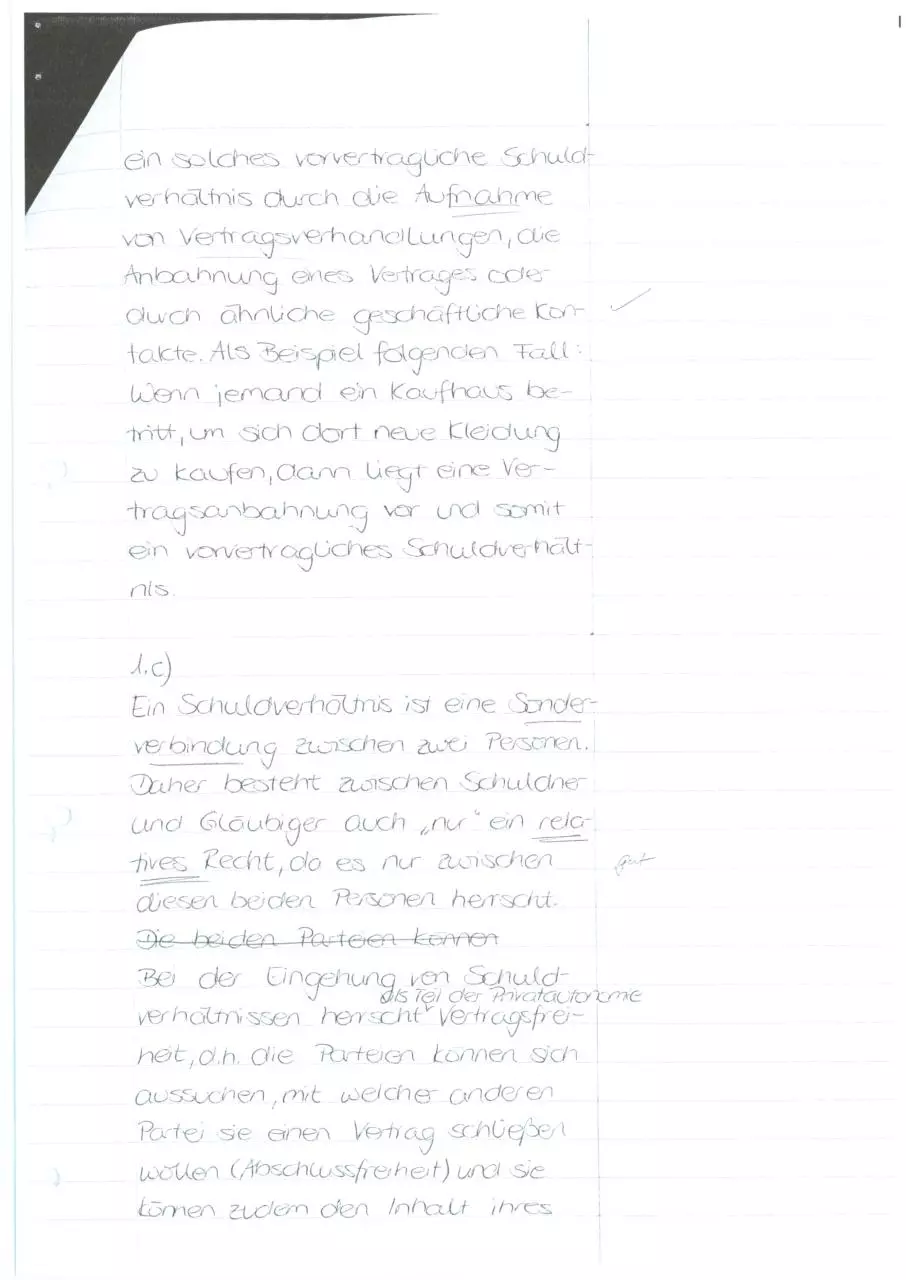 ein solches vorvertragliche Schuld-
verhältnis durch die Aufnahme
von Vertragsverhandlungen, die
Anbahnung eines Vertrages oder
durch ähnliche geschäftliche Kon-
takte. Als Beispiel folgenden Fall:
Wenn jemand ein Kaufhaus be-
tritt, um sich dort neue Kleidung
zu kaufen, dann liegt eine Ver-
tragsanbahnung vor und somit
ein vorvertragliches Schuldverhält-
nis.
1.c)
Ein Schuldverhältnis ist eine Sonder-
verbindung zwischen zwei Personen.
Daher besteht zwischen Schuldner
und Gläubiger auch „nur“ ein rela-
tives Recht, da es nur zwischen
gut
diesen beiden Personen herrscht.
Die beiden Parteien können
Bei der Eingehung von Schuld-
als Teil der Privatautonomie
verhältnissen herrscht Vertragsfrei-
heit, d.h. die Parteien können sich
aussuchen, mit welcher anderen
Partei sie einen Vertrag schließen
wollen (Abschlussfreiheit) und sie
können zudem den Inhalt ihres